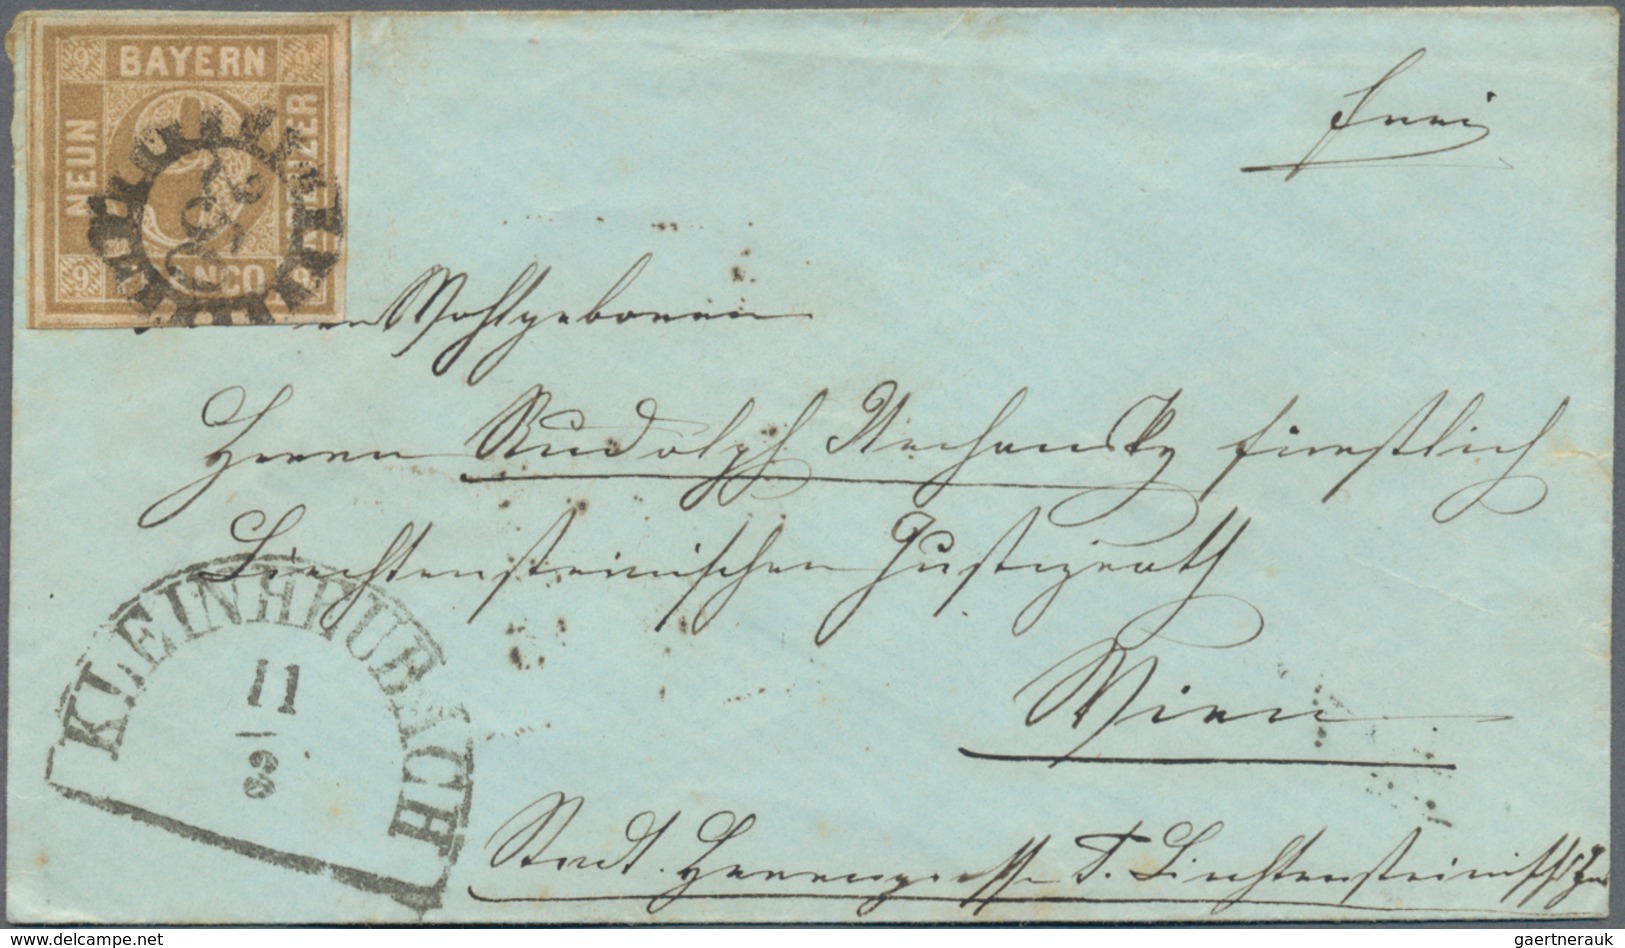 9 BAYERN 9
NEUN
KREUZER
9 FRANCO 9
250
frei
Wohlgeboren
Herrn Rudolph Nechansky fürstlich
Liechtensteinischen Justizrath
Wien
Stadt. Herrengasse F. Liechtensteinisch
KLEINHEUBACH
11
9
delcampe.net
gaertnerauk